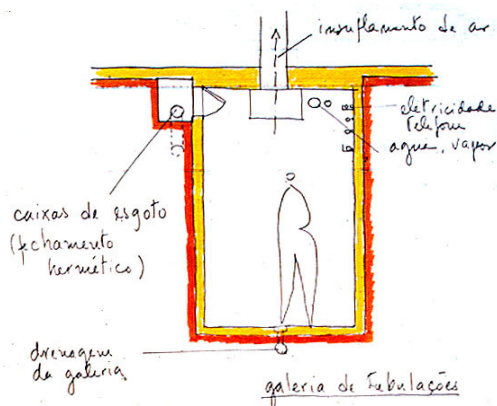 insuflamento de ar
eletricidade
telefone
agua, vapor
caixas de esgoto
(fechamento
hermético)
drenagem
da galeria
galeria de Tubulações